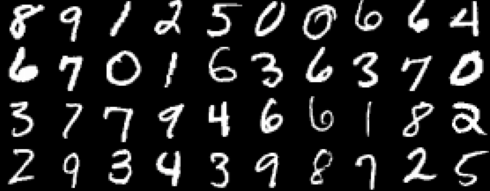 8 9 1 2 5 0 0 6 6 4
6 7 0 1 6 3 6 3 7 0
3 7 7 9 4 6 6 1 8 2
2 9 3 4 3 9 8 7 2 5